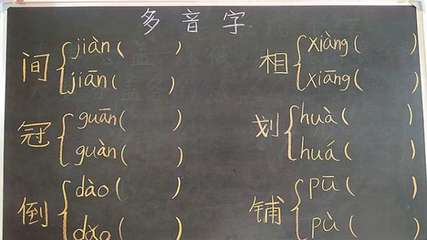 多音字
间 jiàn( )
jiān( )
冠 guān( )
guàn( )
倒 dào( )
dǎo(
相 xiàng( )
xiāng( )
划 huà( )
huá( )
铺 pū( )
pù( )